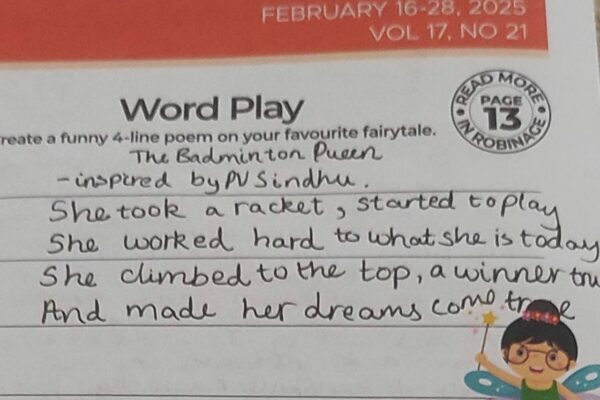 FEBRUARY 16-28, 2025
VOL 17, NO 21
READ MORE
PAGE
13
IN ROBINAGE
Word Play
reate a funny 4-line poem on your favourite fairytale.
The Badminton Pueen
- inspired by PV Sindhu.
She took a racket, started to play
She worked hard to what she is today
She climbed to the top, a winner tru
And made her dreams come true